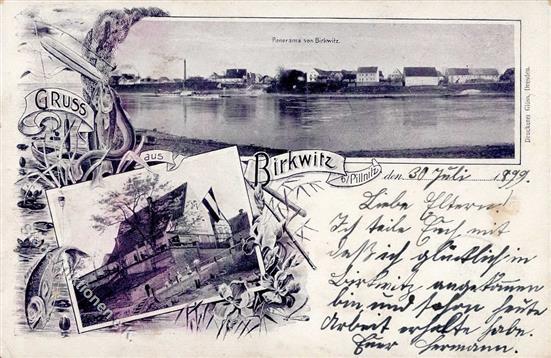 Panorama von Birkwitz.
GRUSS
aus
Birkwitz
b/Pillnitz, den 30 Juli 1899.
Liebe Eltern!
Ich teile Euch mit
daß ich glücklich in
Birkwitz angekommen
bin und schon heute
Arbeit erhalte habe.
Euer Hermann.
Druckerei Glöss, Dresden.